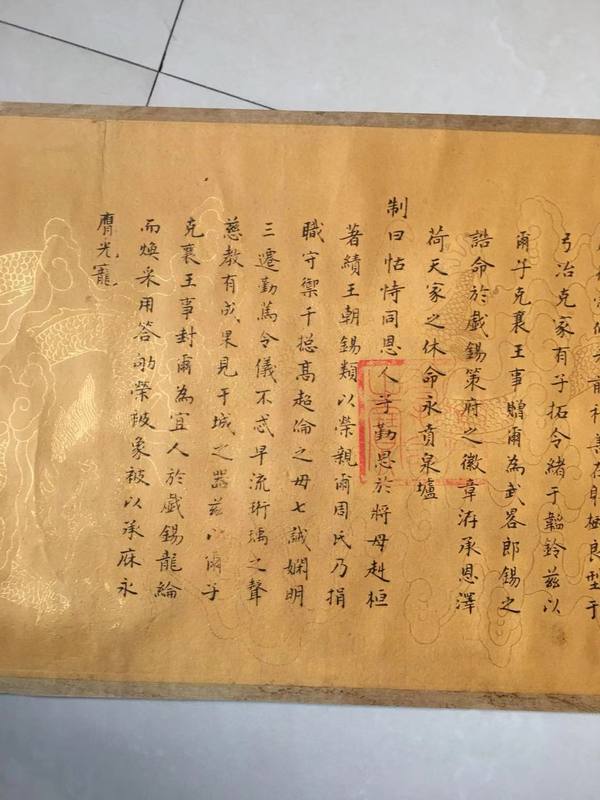 前祥善在躬樹良型于
弓冶克家有子拓令緒于韜鈐茲以
爾子克襄王事贈爾為武畧郎錫之
誥命於戲錫策府之徽章洊承恩澤
荷天家之休命永賁泉壚
制曰怙恃同恩人子勤思於將母赳桓
著績王朝錫類以榮親爾周氏乃捐
職守禦千揔高超倫之母七誡嫻明
三遷勤篤令儀不忒早流珩瑀之聲
慈教有成果見干城之器茲以爾子
克襄王事封爾為宜人於戲錫龍綸
而煥采用答劬榮被象被以承庥永
膺光寵